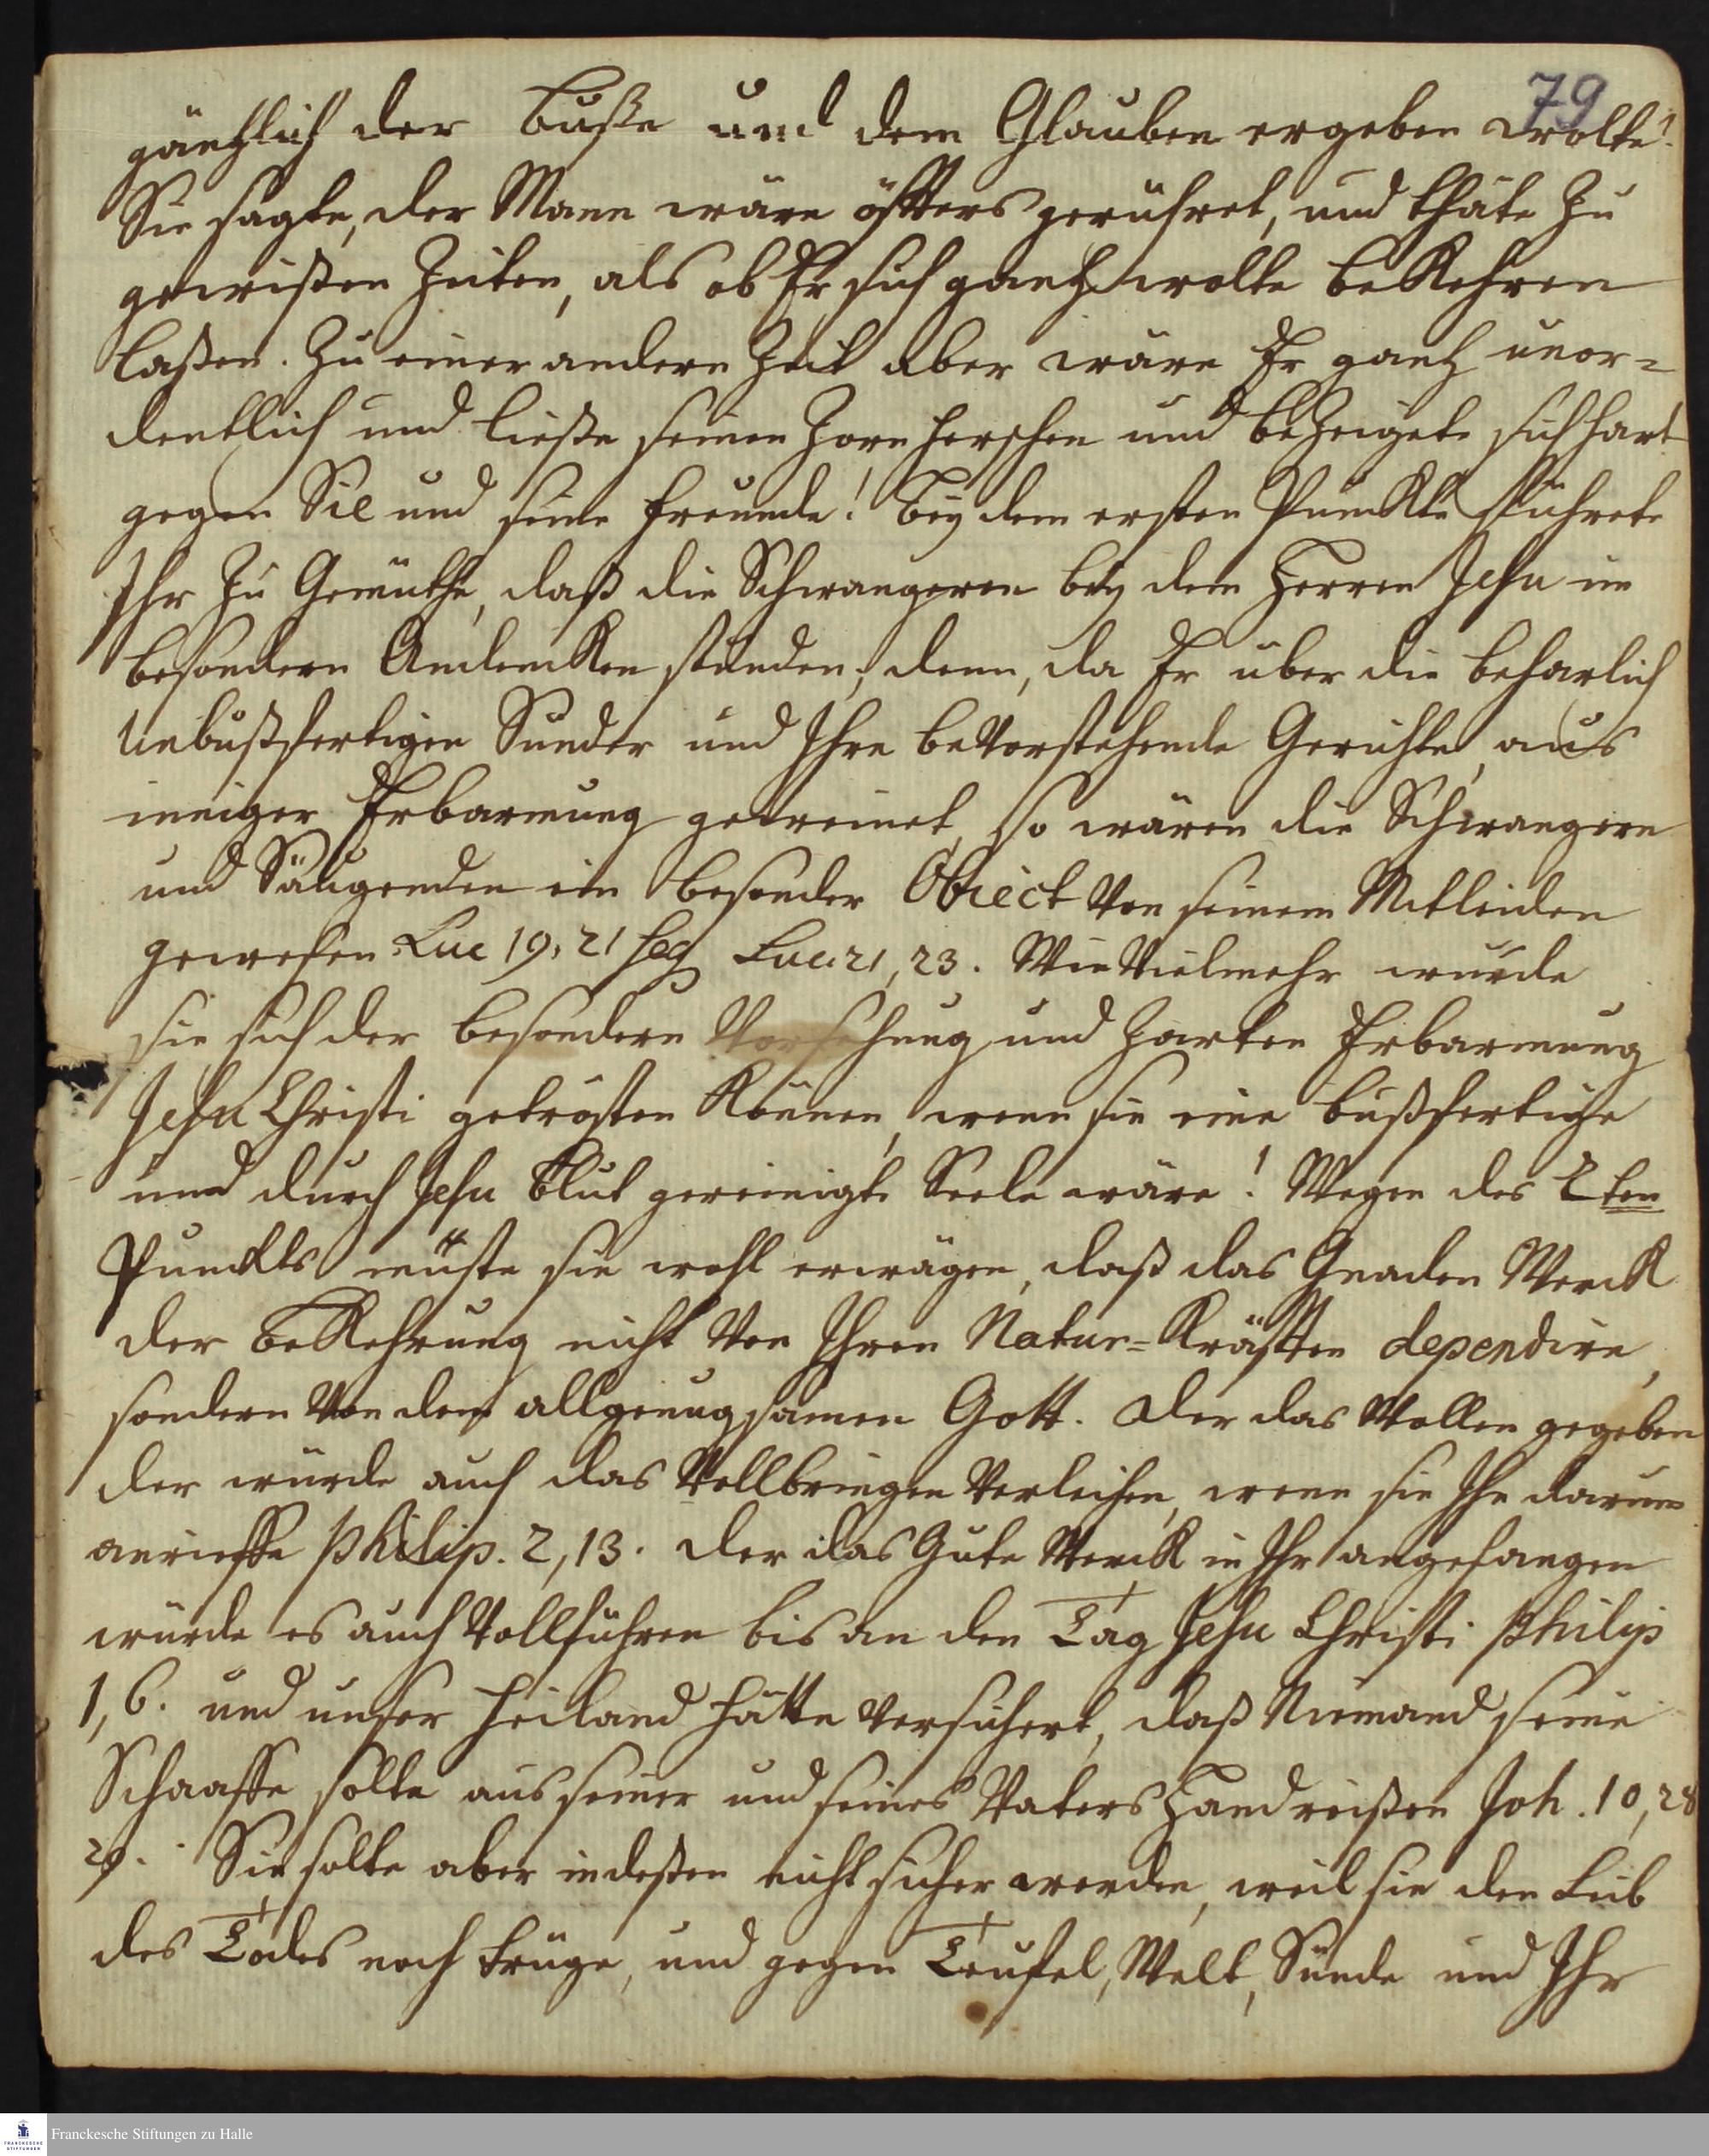 79
gäntzlich der Buße und dem Glauben ergeben wolte!
Sie sagte, der Mann wäre öffters gerühret, und thäte zu
gewißen Zeiten, als ob Er sich gantz wolte bekehren
laßen. Zu einer andern Zeit aber wäre Er gantz unor-
dentlich und ließe seinen Zorn herschen und bezeigete sich hart
gegen Sie und seine Freunde! Bey dem ersten Punckte führete
Ihr zu Gemüthe, daß die Schwangeren bey dem Herren Jesu im
besondern Andencken stünden; denn, da Er über die beharlich
Unbußfertigen Sünder und Ihre bevorstehende Gerichte, aus
inniger Erbarmung geweinet, so wären die Schwangern
und Säugenden ein besonder Obiect von seinem Mitleiden
gewesen Luc 19, 21 seq Luc. 21, 23. Wie vielmehr würde
sie sich der besondern Vorsehung und zarten Erbarmung
Jesu Christi getrösten können, wenn sie eine bußfertige
und durch Jesu Blut gereinigte Seele wäre! Wegen des 2ten
Punckts müste sie wohl erwägen, daß das Gnaden Werck
der Bekehrung nicht von Ihren Natur-Kräfften dependire,
sondern von dem allgenugsamen Gott. Der das Wollen gegeben
der würde auch das Vollbringen verleihen, wenn sie Ihn darum
anrieffe Philip. 2, 13. Der das Gute Werck in Ihr angefangen
würde es auch vollführen bis an den Tag Jesu Christi Philip
1, 6. und unser Heiland hätte versichert, daß Niemand seine
Schaaffe solte aus seiner und seines Vaters Hand reißen Joh. 10, 28
29. Sie solte aber indeßen nicht sicher werden, weil sie den Leib
des Todes noch trüge, und gegen Teufel, Welt, Sünde und Ihr
FRANCKESCHE
STIFTUNGEN
Franckesche Stiftungen zu Halle